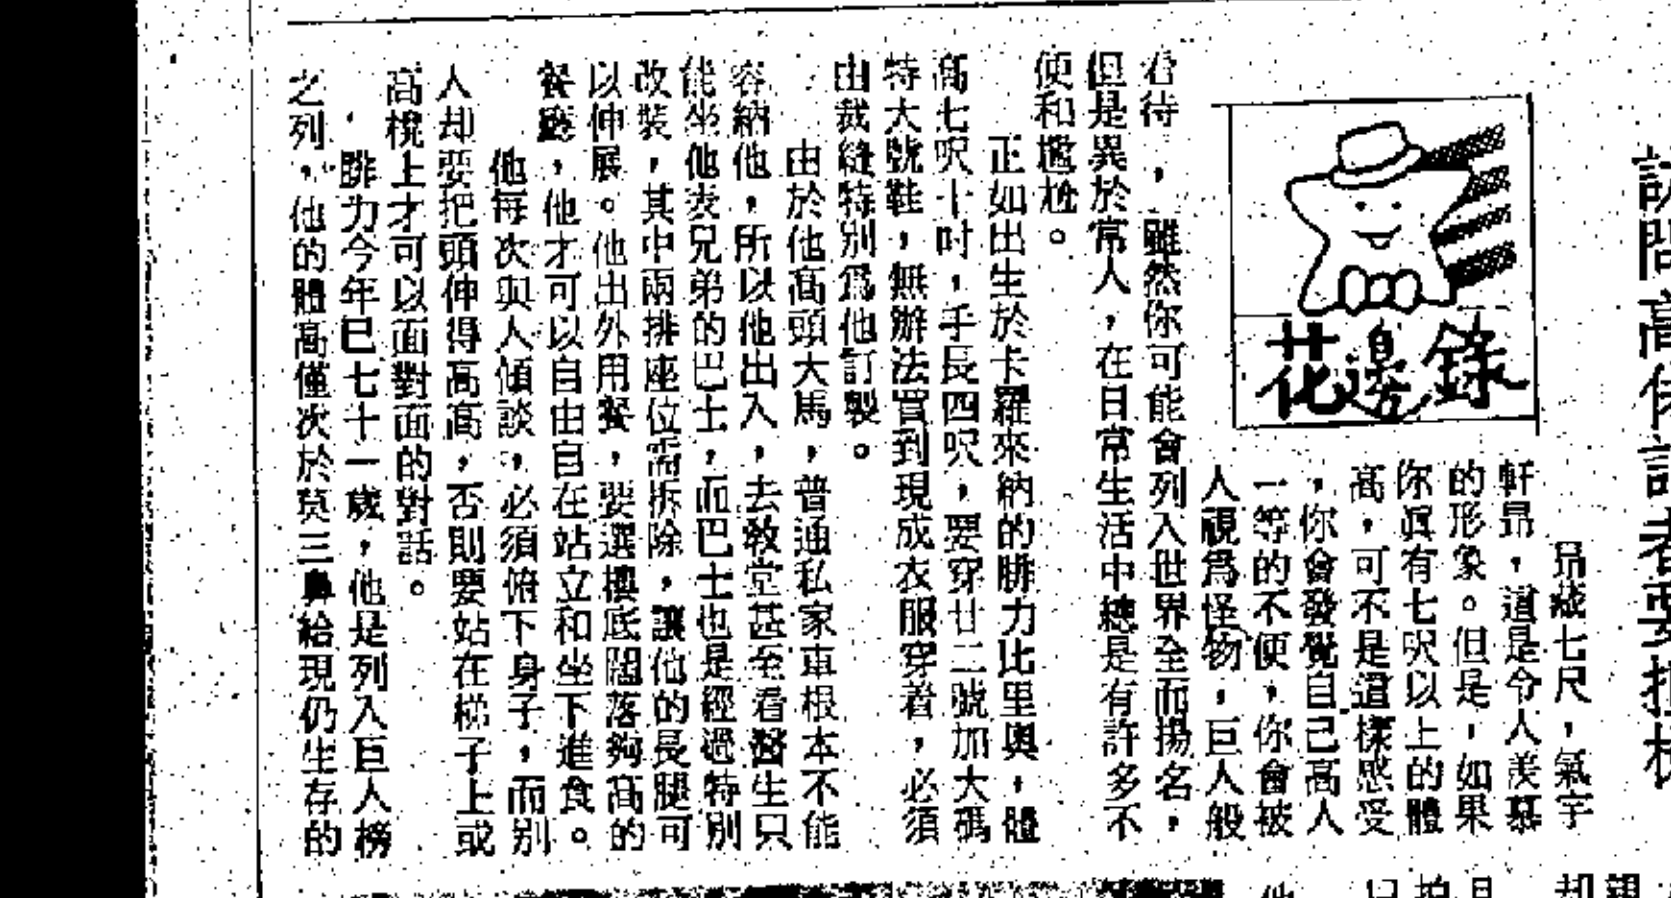 訪問高佬記者要担梯
花邊錄
昂藏七尺，氣宇
軒昂，道是令人羨慕
的形象。但是，如果
你眞有七呎以上的體
高，可不是這樣感受
，你會發覺自己高人
一等的不便，你會被
人視爲怪物，巨人般
看待，雖然你可能會列入世界全而揚名，
但是異於常人，在日常生活中總是有許多不
便和尷尬。
正如出生於卡羅來納的腓力比里奧，體
高七呎十吋，手長四呎，要穿廿二號加大碼
特大號鞋，無辦法買到現成衣服穿着，必須
由裁縫特別爲他訂製。
由於他高頭大馬，普通私家車根本不能
容納他，所以他出入，去教堂甚至看醫生只
能坐他表兄弟的巴士，而巴士也是經過特別
改裝，其中兩排座位需拆除，讓他的長腿可
以伸展。他出外用餐，要選樓底闊落夠高的
餐廳，他才可以自由自在站立和坐下進食。
他每次與人傾談，必須俯下身子，而別
人却要把頭伸得高高，否則要站在梯子上或
高櫈上才可以面對面的對話。
腓力今年已七十一歲，他是列入巨人榜
之列，他的體高僅次於莫三鼻給現仍生存的